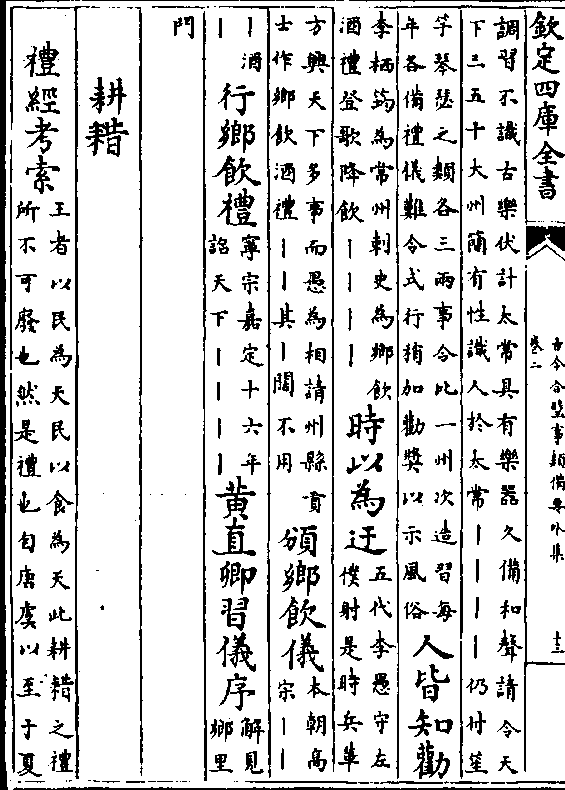 欽定四庫全書
古今合璧事類備要外集
卷二
十三
調習不識古樂伏計太常具有樂器久備和聲請令天
下三五十大州簡有性識人於太常｜｜｜｜仍付笙
竽琴瑟之類各三兩事令比一州次造習每
年各備禮儀難令式行稍加勸奬以示風俗
人皆知勸
李栖筠為常州刺史為鄉飲
酒禮登歌降飲｜｜｜｜
時以為迂
五代李愚守左
僕射是時兵革
方興天下多事而愚為相請州縣貢
士作鄉飲酒禮｜｜其｜闊不用
頒鄉飲儀
本朝高
宗｜｜
｜酒
｜
行鄉飲禮
寧宗嘉定十六年
詔天下｜｜｜｜
黄直卿習儀序
解見
鄉里
門
耕耤
禮經考索
王者以民為天民以食為天此耕耤之禮
所不可廢也然是禮也自唐虞以至于夏